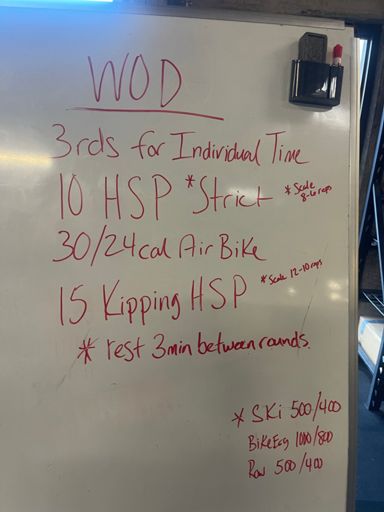 WOD
3rds for Individual Time
10 HSP *Strict *Scale 8-6 reps
30/24cal Air Bike
15 Kipping HSP *Scale 12-10 reps
* rest 3min between rounds.
* Ski 500/400
BikeErg 1000/800
Row 500/400